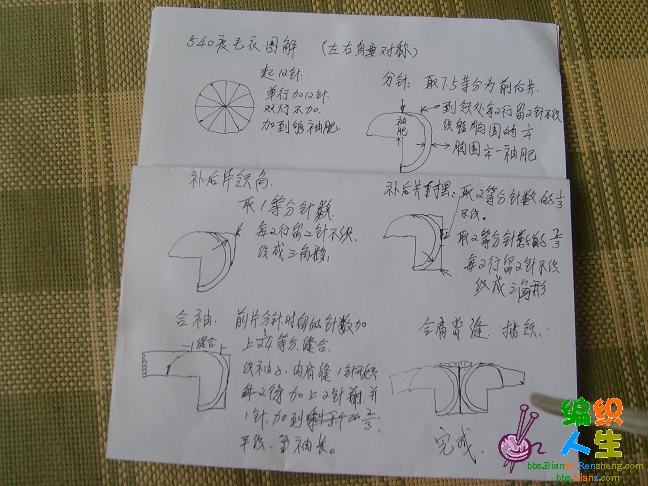 540度毛衣图解 (左右身要对称)
起12针.
单行加12针.
双行不加.
加到够袖肥.
分针: 取7.5等分为前后片.
到铁处每2行留2针不织
织够胸围的
袖肥
胸围 一袖肥
补后片领高
取1等分针数
每2行留2针不织.
织成三角形;
补后片下摆:
取2等分针数的1/3
不织.
取2等分针数的2/3
每2行留2针不织
织成三角形
合袖. 前片分针时留的针数加
上 等分缝合.
缝合
织袖子, 由肩缝1针开始
每2行加上2针前并
1针. 加到 2/3.
平织. 至袖长.
合肩背缝. 挑织.
完成.
编织
人生
bbs.BianzhiRensheng.com
bbs.Bianz.com